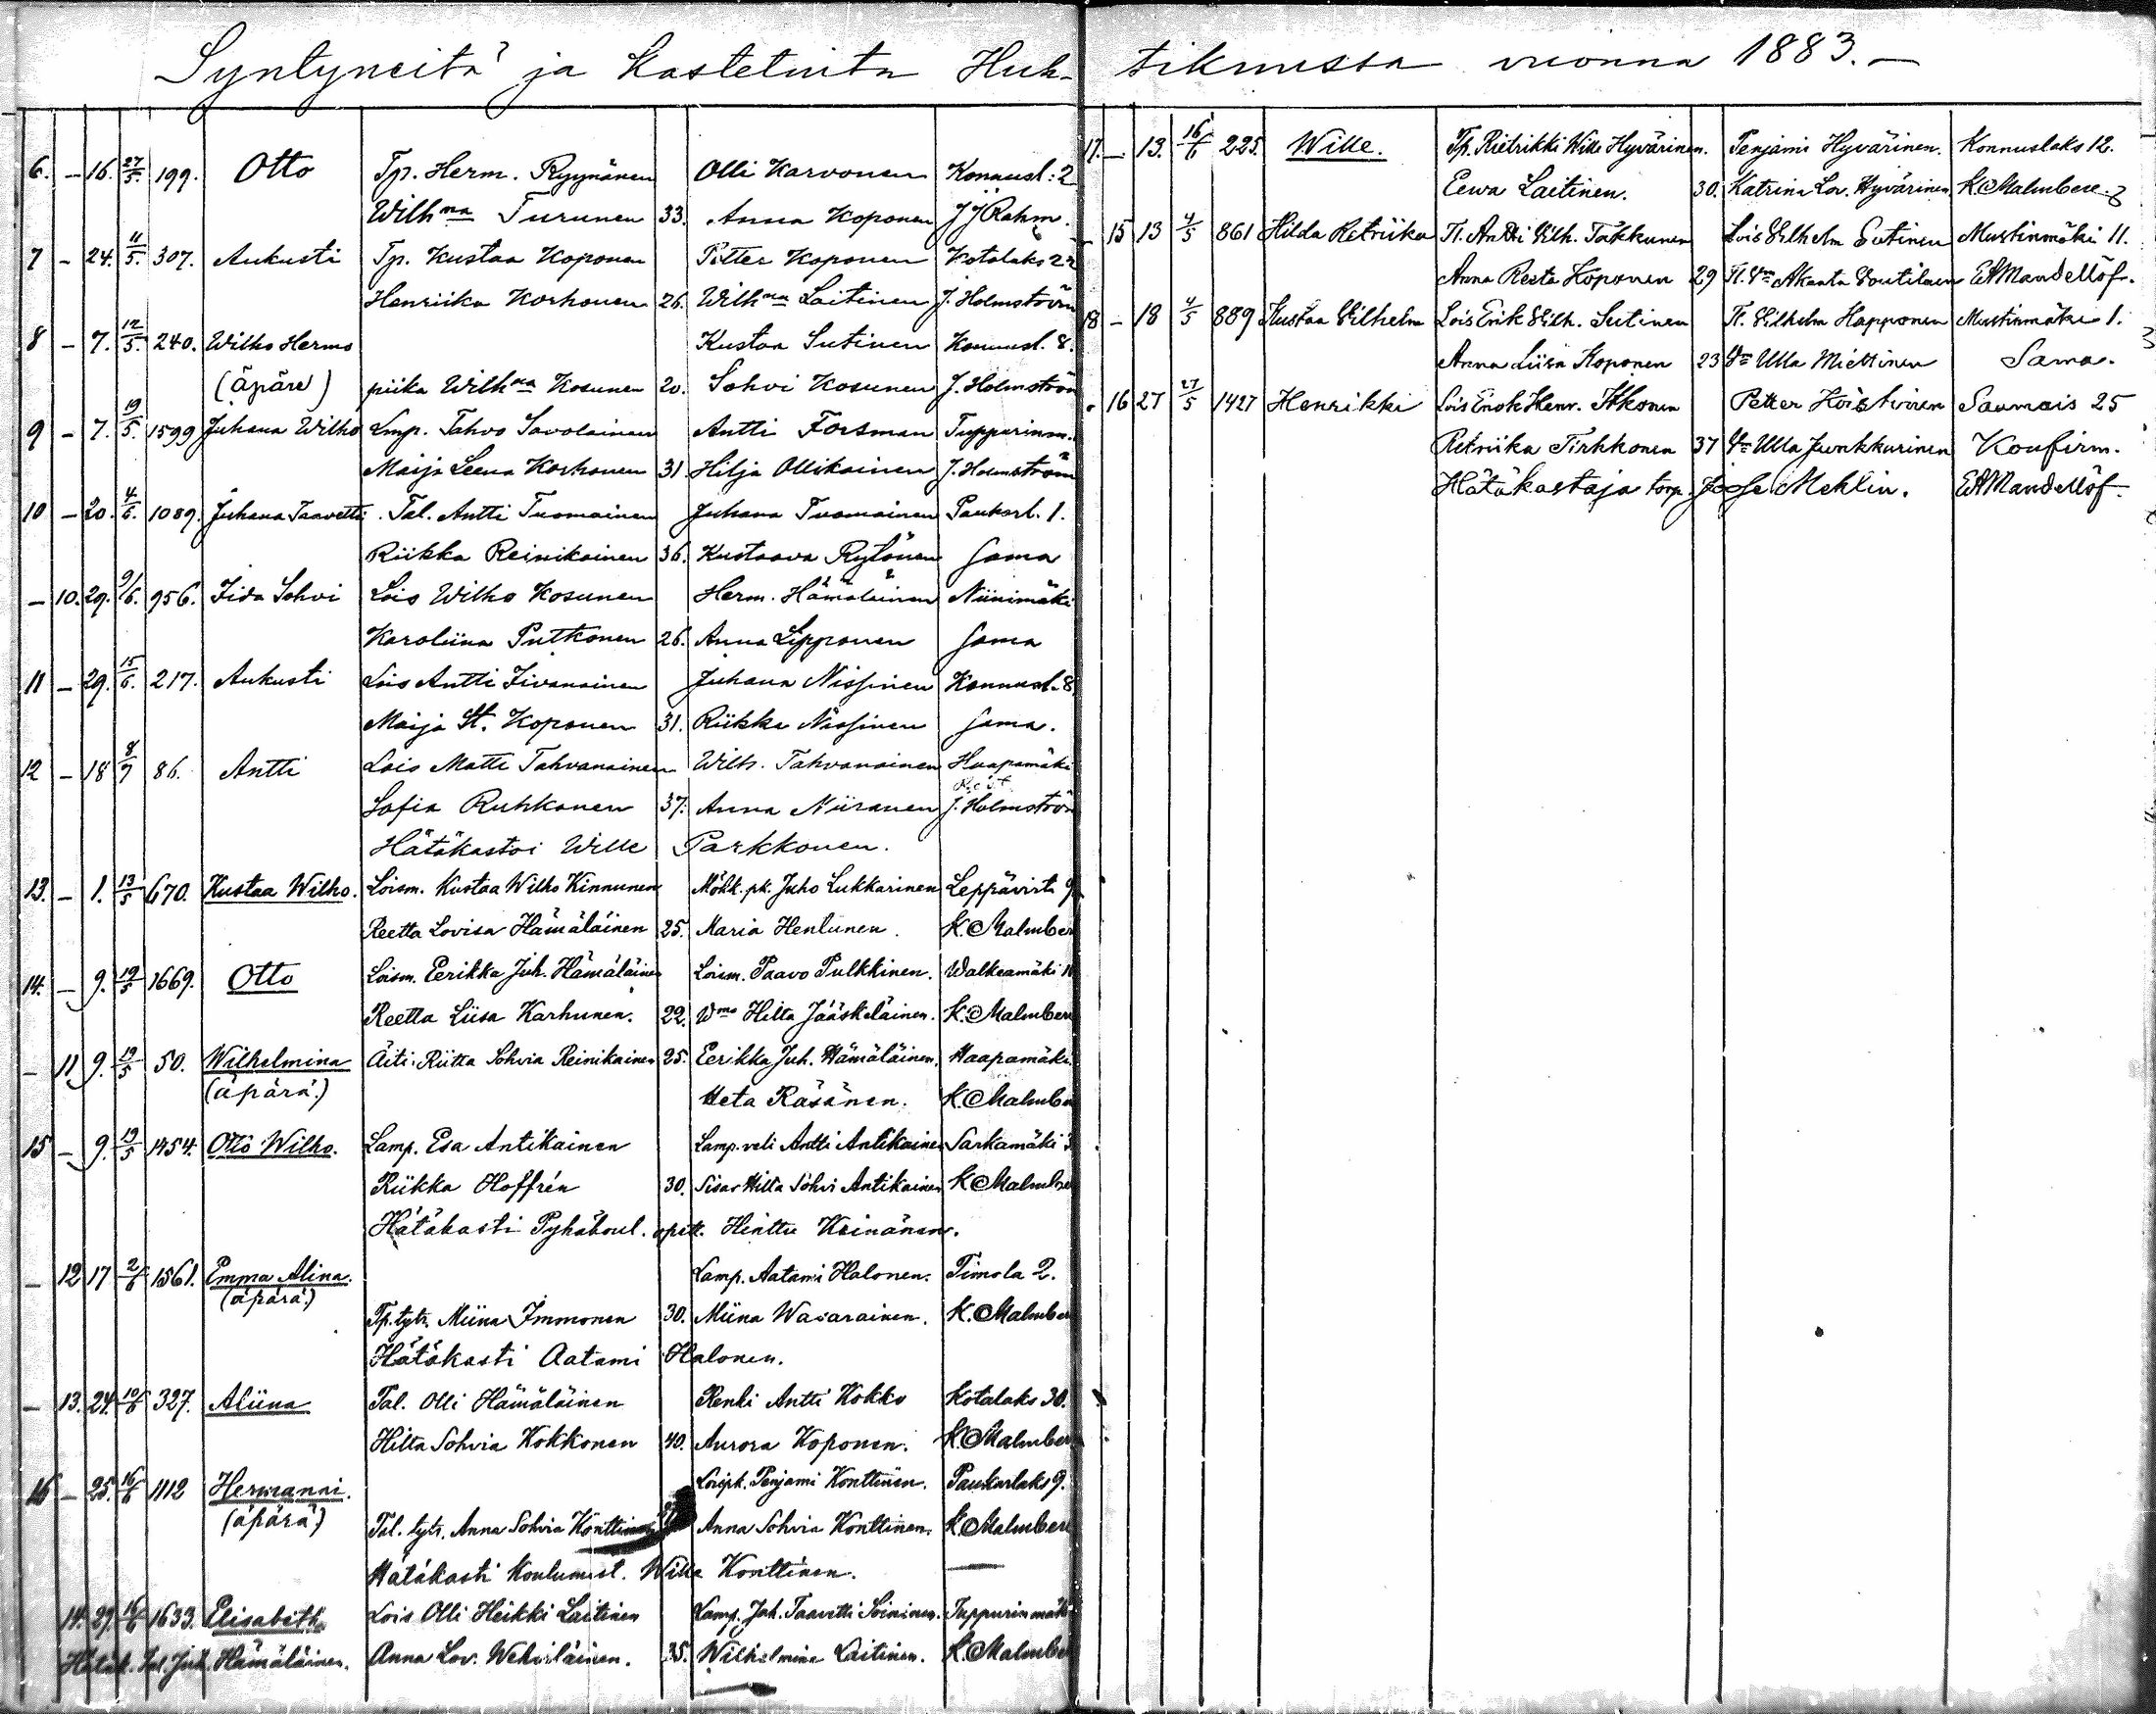 Syntyneitä ja Kastetuita Huh-
6. — 16. 27/5. 199. Otto Tp. Herm. Ryynänen Olli Karvonen Konnusl: 2
Wilhna Turunen 33. Anna Koponen J J Rahm.
7 — 24. 11/5. 307. Aukusti Tp. Kustaa Koponen Petter Koponen Kotalaks 22
Henriika Korhonen 26. Wilhna Laitinen J. Holmström
8 — 7. 12/5. 240. Wilho Hermo Kustaa Sutinen Konnusl. 8.
(äpäre) piika Wilhna Kosunen 20. Sohvi Kosunen J. Holmström
9 — 7. 19/5. 1599 Juhana Wilho Lmp. Tahvo Savolainen Antti Forsman Tuppurinm.
Maija Leena Korhonen 31. Hilja Ollikainen J. Holmström
10 — 20. 4/6. 1089. Juhana Taavetti Tal. Antti Tuomainen Juhana Tuomainen Paukarl. 1.
Riikka Reinikainen 36. Kustaava Rytönen Sama
— 10. 29. 9/6. 956. Iida Sohvi Lois Wilho Kosunen Herm. Hämäläinen Niinimäki
Karoliina Putkonen 26. Anna Lipponen Sama
11 — 29. 15/6. 217. Aukusti Lois Antti Iivanainen Juhana Nissinen Konnusl. 8.
Maija St. Koponen 31. Riikka Nissinen Sama.
12 — 18 8/7 86. Antti Lois Matti Tahvanainen Wilh. Tahvanainen Haapamäki
Sofia Ruhkanen 37. Anna Niiranen J. Holmström
Hätäkastoi Wille Parkkonen.
13. — 1. 13/5 670. Kustaa Wilho. Loism. Kustaa Wilho Kinnunen Mökk. pk. Juho Lukkarinen Leppävirta 9
Reetta Lovisa Hämäläinen 25. Maria Henlunen. K. Malmber
14. — 9. 19/5 1669. Otto Loism. Eerikka Juh. Hämäläinen Loism. Paavo Pulkkinen. Walkeamäki 11
Reetta Liisa Karhunen. 22. Wmo Hilta Jääskeläinen. K. Malmber
— 11 9. 19/5 50. Wilhelmina Äiti: Riitta Sohvia Reinikainen 25. Eerikka Juh. Hämäläinen. Haapamäki.
(äpärä.) Heta Räsänen. K. Malmber
15 — 9. 19/5 1454. Otto Wilho. Lamp. Esa Antikainen Lamp. veli Antti Antikainen Sarkamäki 3
Riikka Hoffrén 30. Sisar Hilta Sohvi Antikainen K. Malmber
Hätäkasti Pyhäkoul. opett. Hinttu Keinänen.
— 12 17 2/6 1561. Emma Alina. Lamp. Aatami Halonen. Timola 2.
(äpärä.)
Tp. tytr. Miina Immonen 30. Miina Wasarainen. K. Malmber
Hätäkasti Aatami Halonen.
— 13. 24. 10/6 327. Aliina Tal. Olli Hämäläinen Renki Antti Kokko Kotalaks 30.
Hilta Sohvia Kokkonen 40. Aurora Koponen. K. Malmber
16 — 25. 16/6 1112 Hermanni. Loispk. Penjami Konttinen. Paukarlaks 9.
(äpärä.) Tal. tytr. Anna Sohvia Konttinen Anna Sohvia Konttinen. K. Malmber
Hätäkasti Koulumest. Wille Konttinen. —
14. 29. 16/6 1633. Elisabeth Lois Olli Heikki Laitinen Lamp. Joh. Taavetti Soininen. Tuppurinmäki
Hätäk. Tal. Juh. Hämäläinen. Anna Lov. Wehviläinen. 35. Wilhelmina Laitinen. K. Malmber
tikuussa vuonna 1883. —
17. — 13. 16/6 225. Wille. Tp. Rietrikki Wille Hyvärinen. Penjami Hyvärinen. Konnuslaks 12.
Eewa Laitinen. 30. Katrina Lov. Hyvärinen K. Malmberg
— 15 13 4/5 861 Hilda Retriika Tl. Antti Vilh. Takkunen Lois Vilhelm Sutinen Mustinmäki 11.
Anna Reeta Koponen 29 Tl. Vmo Akaata Soutilainen EA Mandellöf.
18 — 18 4/5 889 Kustaa Vilhelm Lois Erik Vilh. Sutinen Tl. Vilhelm Happonen Mustinmäki 1.
Anna Liisa Koponen 23 Vmo Ulla Miettinen Sama.
16 27 27/5 1427 Henrikki Lois Enok Henr. Itkonen Petter Koistinen Saamais 25
Retriika Tirkkonen 37 Vmo Ulla Junkkarinen Konfirm.
Hätäkastaja torp. Josef Mehlin. EA Mandellöf.